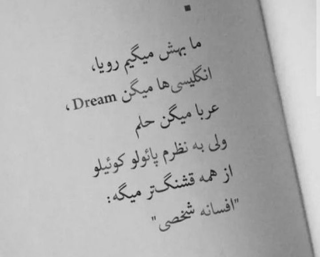 ما بهش میگیم رویا،
انگلیسی‌ها میگن Dream،
عربا میگن حلم
ولی به نظرم پائولو کوئیلو
از همه قشنگ‌تر میگه:
"افسانه شخصی"